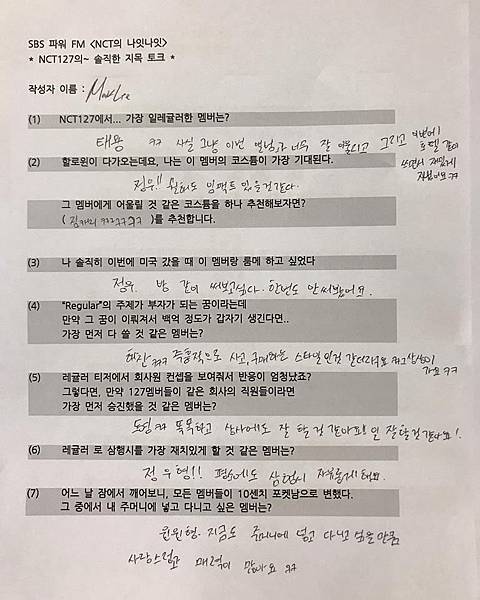 SBS 파워 FM <NCT의 나잇나잇>
* NCT127의~ 솔직한 지목 토크 *
작성자 이름 : Mark Lee
(1) NCT127에서... 가장 일레귤러한 멤버는?
태용 ㅋㅋ 사실 그냥 이번 앨범과 너무 잘 어울리고 그리고 이번에
호텔 같이
쓰면서 재밌게
지냈어요 ㅋㅋ
(2) 할로윈이 다가오는데요, 나는 이 멤버의 코스튬이 가장 기대된다.
정우!! 뭘해도 임팩트 있을 것 같다.
그 멤버에게 어울릴 것 같은 코스튬을 하나 추천해보자면?
( ㅋㅋㅋㅋㅋㅋ )를 추천합니다.
(3) 나 솔직히 이번에 미국 갔을 때 이 멤버랑 룸메 하고 싶었다
정우. 방 같이 써보고싶다. 한번도 안써봤어요.
(4) "Regular"의 주제가 부자가 되는 꿈이라는데
만약 그 꿈이 이뤄져서 백억 정도가 갑자기 생긴다면..
가장 먼저 다 쓸 것 같은 멤버는?
해찬 ㅋㅋ 충동적으로 사고, 구매하는 스타일인것 같더라구요 최근 상상이
가요 ㅋㅋ
(5) 레귤러 티저에서 회사원 컨셉을 보여줘서 반응이 엄청났죠?
그렇다면, 만약 127멤버들이 같은 회사의 직원들이라면
가장 먼저 승진했을 것 같은 멤버는?
도영 ㅋㅋ 똑똑하고 상사에도 잘 할 것 같아요! 일 잘할것 같아요!
(6) 레귤러 로 삼행시를 가장 재치있게 할 것 같은 멤버는?
정우형!! 평소에도 삼행시 자유롭게 해요.
(7) 어느 날 잠에서 깨어보니, 모든 멤버들이 10센치 포켓남으로 변했다.
그 중에서 내 주머니에 넣고 다니고 싶은 멤버는?
윈윈형. 지금도 주머니에 넣고 다니고 싶을 만큼
사랑스럽고 매력이 많아요 ㅋㅋ